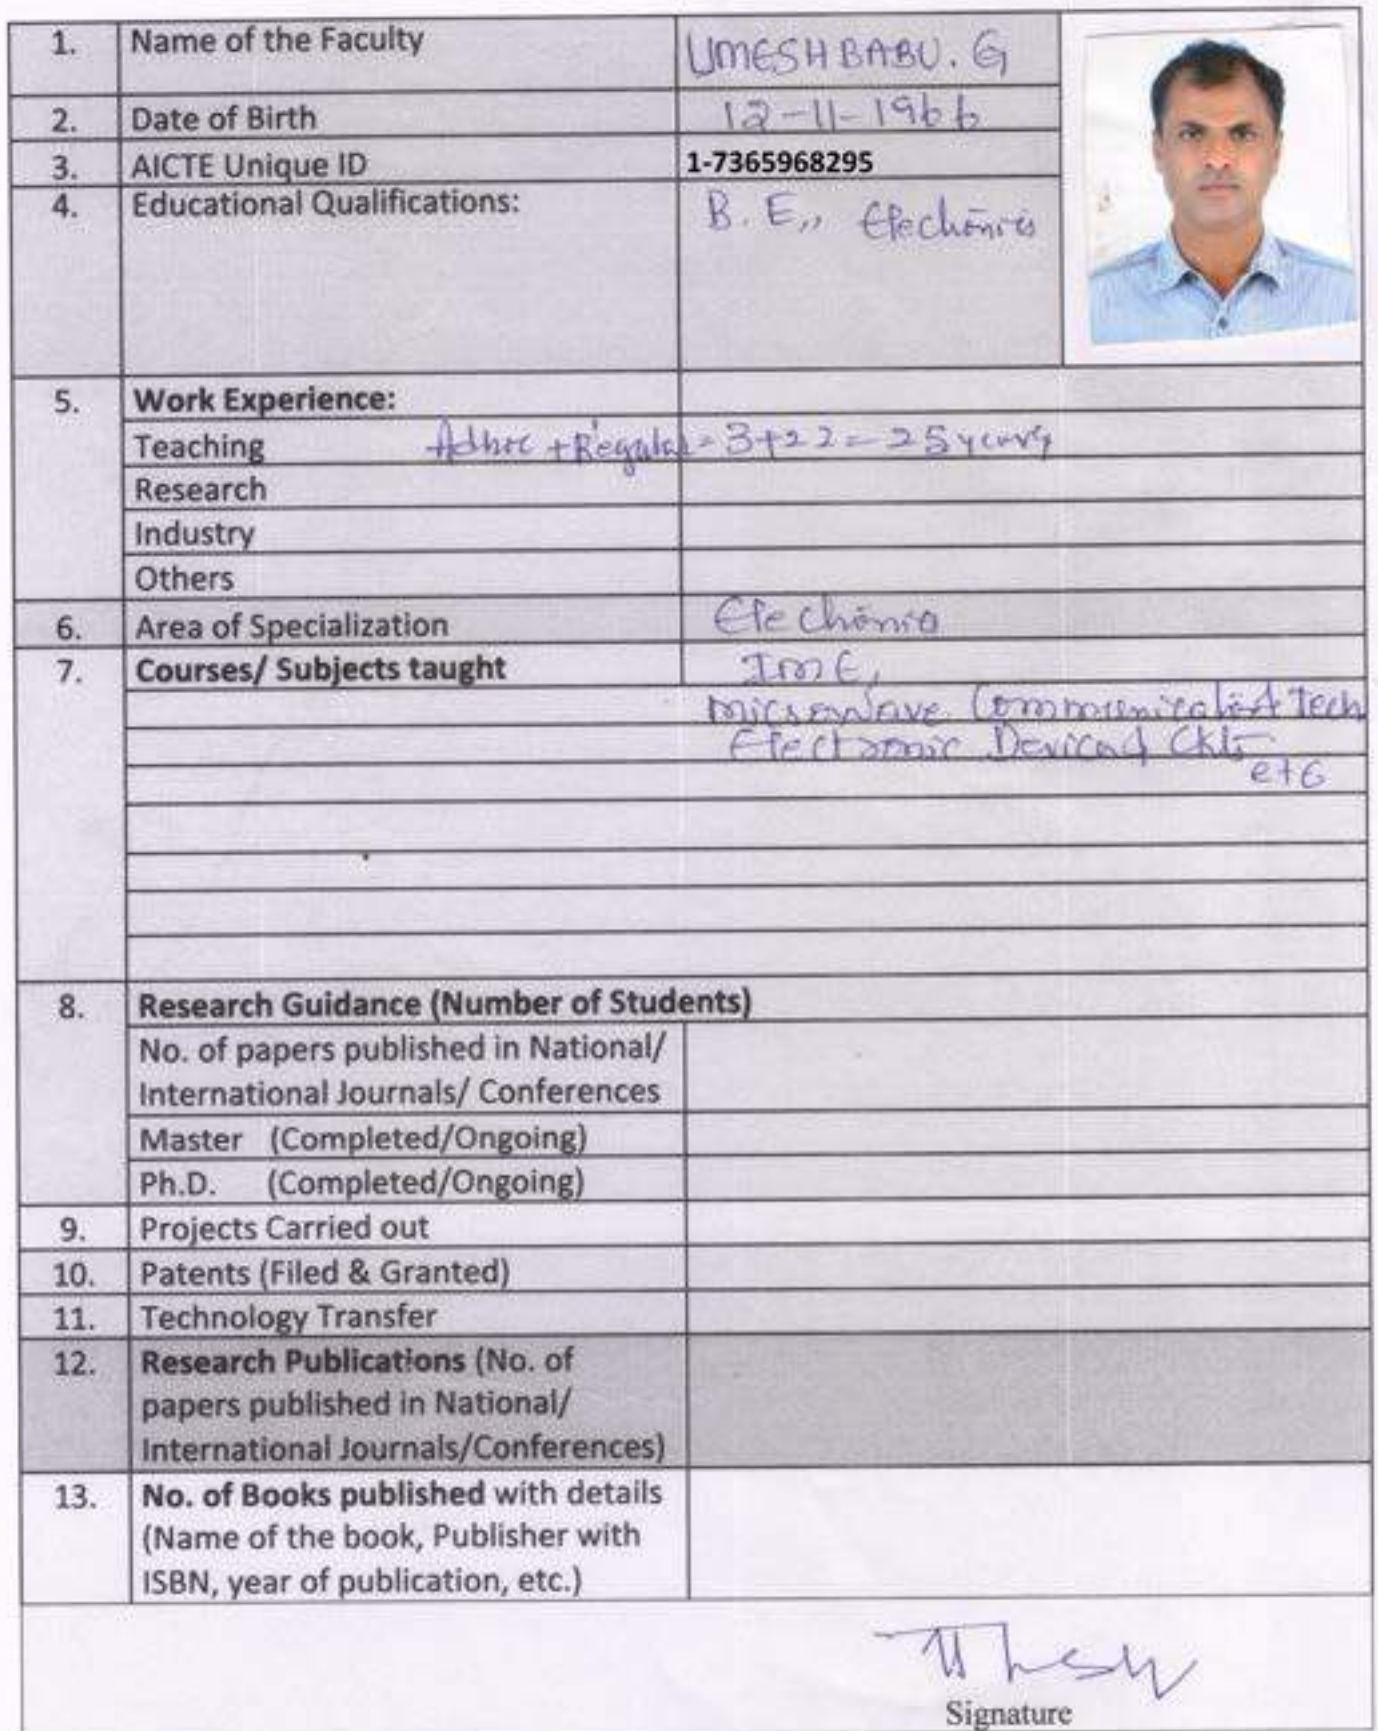 1. Name of the Faculty UMESH BABU. G
2. Date of Birth 12-11-1966
3. AICTE Unique ID 1-7365968295
4. Educational Qualifications: B. E,, Electronics
5. Work Experience:
Teaching Adhoc + Regular = 3+22 = 25 years
Research
Industry
Others
6. Area of Specialization Electronics
7. Courses/ Subjects taught IME,
Microwave Communication Tech
Electronic Devices & Ckts
etc
8. Research Guidance (Number of Students)
No. of papers published in National/
International Journals/ Conferences
Master (Completed/Ongoing)
Ph.D. (Completed/Ongoing)
9. Projects Carried out
10. Patents (Filed & Granted)
11. Technology Transfer
12. Research Publications (No. of
papers published in National/
International Journals/Conferences)
13. No. of Books published with details
(Name of the book, Publisher with
ISBN, year of publication, etc.)
Signature